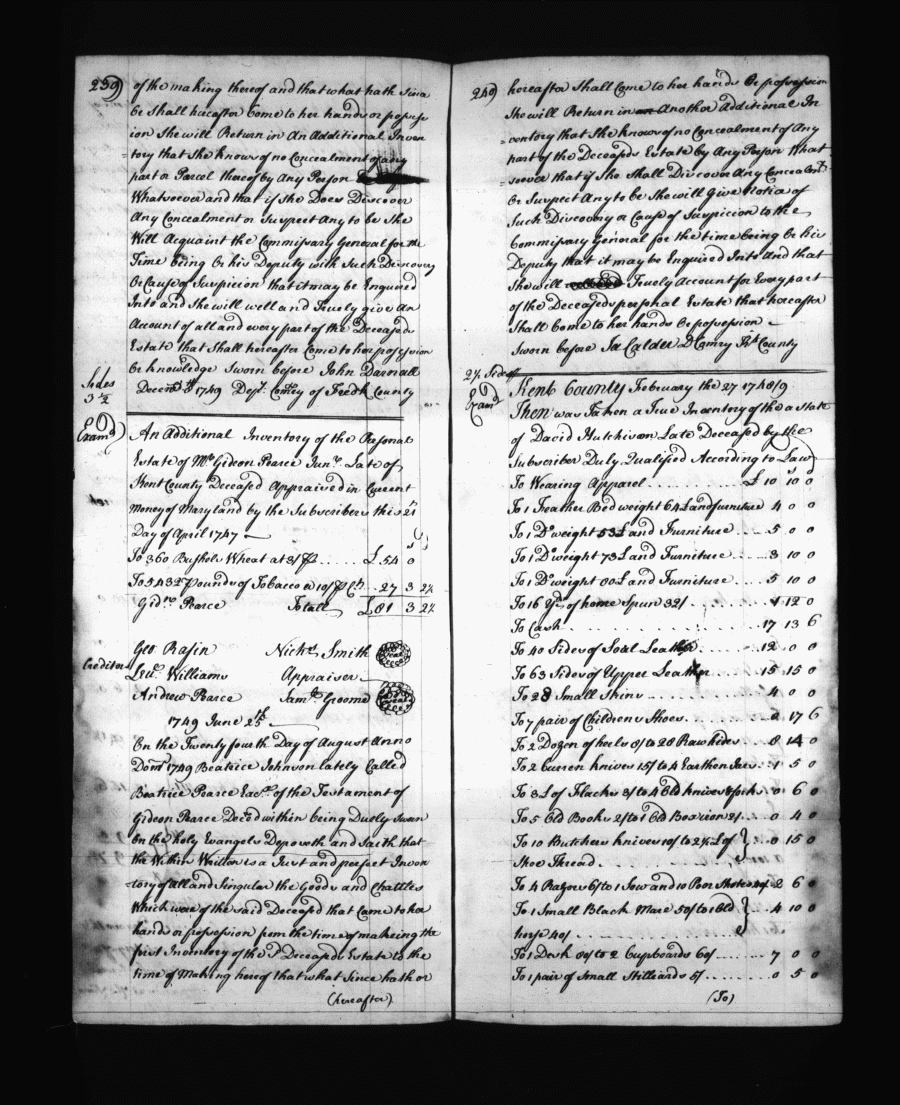 239
of the making thereof and that what hath Since
or Shall hereafter Come to her hands or possess
ion She will Return in An Additional Inven
=tory that She knows of no Concealment of any
part or Parcel thereof by Any Person
Whatsoever and that if She Does Discover
Any Concealment or Suspect Any to be She
Will Acquaint the Commissary General for the
Time being or his Deputy with Such Discovery
or Cause of Suspicion that it may be Enquired
Into and She will well and Truely give An
Account of all and every part of the Deceaseds
Estate that Shall hereafter Come to her possession
or knowledge Sworn before John Darnall
Sides
3 1/2
Decem 1749 Depy. Comry of Fredk County
Examd
An Additional Inventory of the Personal
Estate of Mr Gideon Pearce Junr. Late of
Kent County Deceased Appraised in Current
Money of Maryland by the Subscribers this 21
Day of April 1747
To 360 Bushels Wheat at 3/ p £ 54 0
To 5432 Pounds of Tobacco @ 10/ p Ct 27 3 2 1/2
Gidn Pearce Totall £ 81 3 2 1/2
Geo Rasin Nichs Smith Seal
Creditors
Levi. Williams Appraiser
Andrew Pearce Saml. Groome
1749 June 25th
On the Twenty fourth Day of August Anno
Dom 1749 Beatrice Johnson lately Called
Beatrice Pearce Exec. of the Testament of
Gideon Pearce Decd within being Duely Sworn
On the holy Evangels Deposeth and Saith that
the Within Written is a Just and perfect Inven
=tory of all and Singular the Goods and Chattles
Which were of the said Deceasd that Came to her
hands or possession from the time of makeing the
first Inventory of the sd Deceaseds Estate to the
time of Making hereof that what Since hath or
(hereafter)
240
hereafter Shall Come to her hands or possession
She will Return in Another Additional In
=ventory that She knows of no Concealment of Any
part of the Deceaseds Estate by Any Person What
=soever that if She Shall Discover Any Concealmt
or Suspect Any to be She will Give Notice of
Such Discovery or Cause of Suspicion to the
Commissary General for the time being or his
Deputy that it may be Enquired Into And that
She will Truely Account for Every part
of the Deceaseds personal Estate that hereafter
Shall Come to her hands or possession
Sworn before Ja Calder D Comry Kt County
2 1/2 Sides
Examd
Kent County February the 27 1748/9
Then was Taken a True Inventory of the a State
of David Hutchison Late Deceased by the
Subscriber Duly Qualified According to Law
To Wearing Apparel £ 10 10 0
To 1 Feather Bed weight 64 L and furniture 4 0 0
To 1 Do weight 53 L and Furniture 5 0 0
To 1 Do weight 73 L and Furniture 3 10 0
To 1 Do weight 80 L and Furniture 5 10 0
To 16 Yds of home Spun 32/ 1 12 0
To Cash 17 13 6
To 40 Sides of Soal Leather 12 0 0
To 63 Sides of Upper Leather 15 15 0
To 28 Small Skins 4 0 0
To 7 pair of Childrens Shoes 17 6
To 2 Dozen of heels 8/ to 28 Raw hides 8 14 0
To 2 Curren knives 15/ to 4 Earthen 1 5 0
To 3 L of Flacks 3/ to 4 Old knives & forks 0 6 0
To 5 Old Books 2/ to 1 Old Box iron 2/ 0 4 0
To 10 Butchers knives 10/ to 2 1/2 L of
Shoe Thread 0 15 0
To 4 Razors 6/ to 1 Sow and 10 Poor Shotes 44/ 2 6 0
To 1 Small Black Mare 50/ to 1 Old
horse 40/ 4 10 0
To 1 Desk 80/ to 2 Cupboards 60/ 7 0 0
To 1 pair of Small Stilleards 5/ 0 5 0
(To)